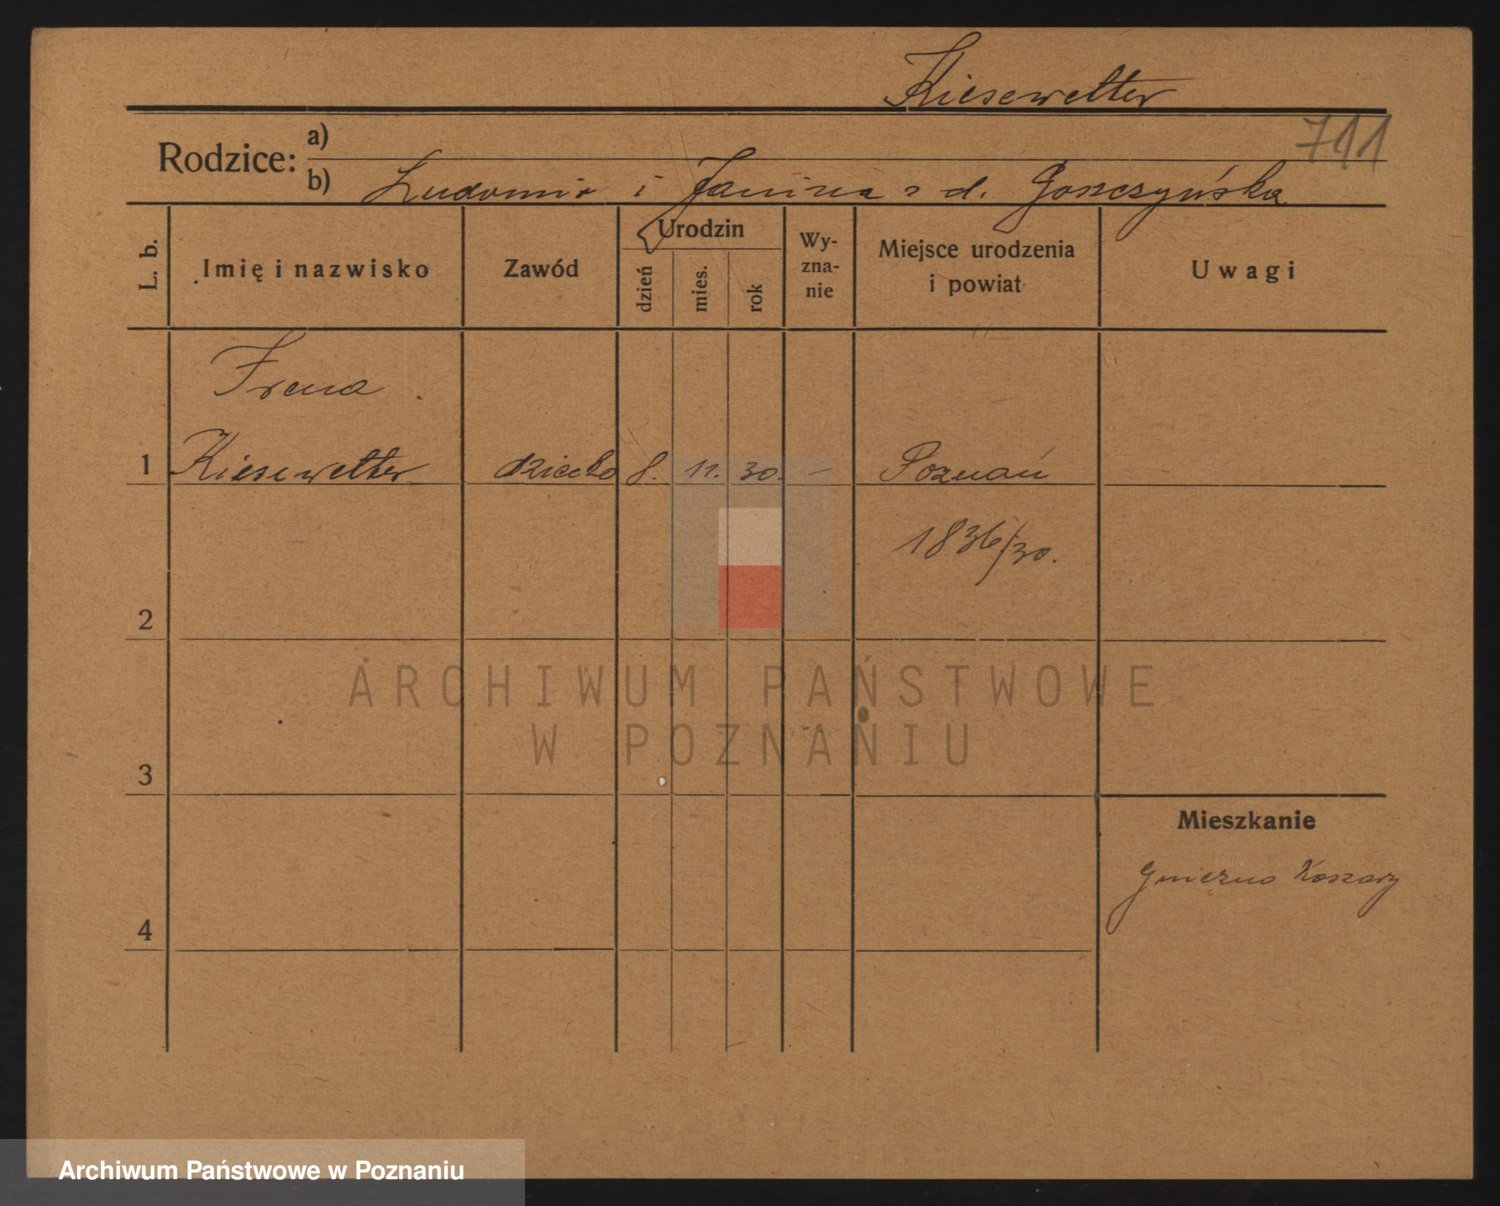 Kiesewetter
711
Rodzice: a)
b) Ludomir i Janina z d. Goszczyńska
L. b.
Imię i nazwisko
Zawód
Urodzin
dzień
mies.
rok
Wy-
zna-
nie
Miejsce urodzenia
i powiat
Uwagi
Irena
1 Kiesewetter dziecko 8. 11. 30. – Poznań
1836/30.
2
3
4
Mieszkanie
Gniezno Koszary
ARCHIWUM PAŃSTWOWE
W POZNANIU
Archiwum Państwowe w Poznaniu